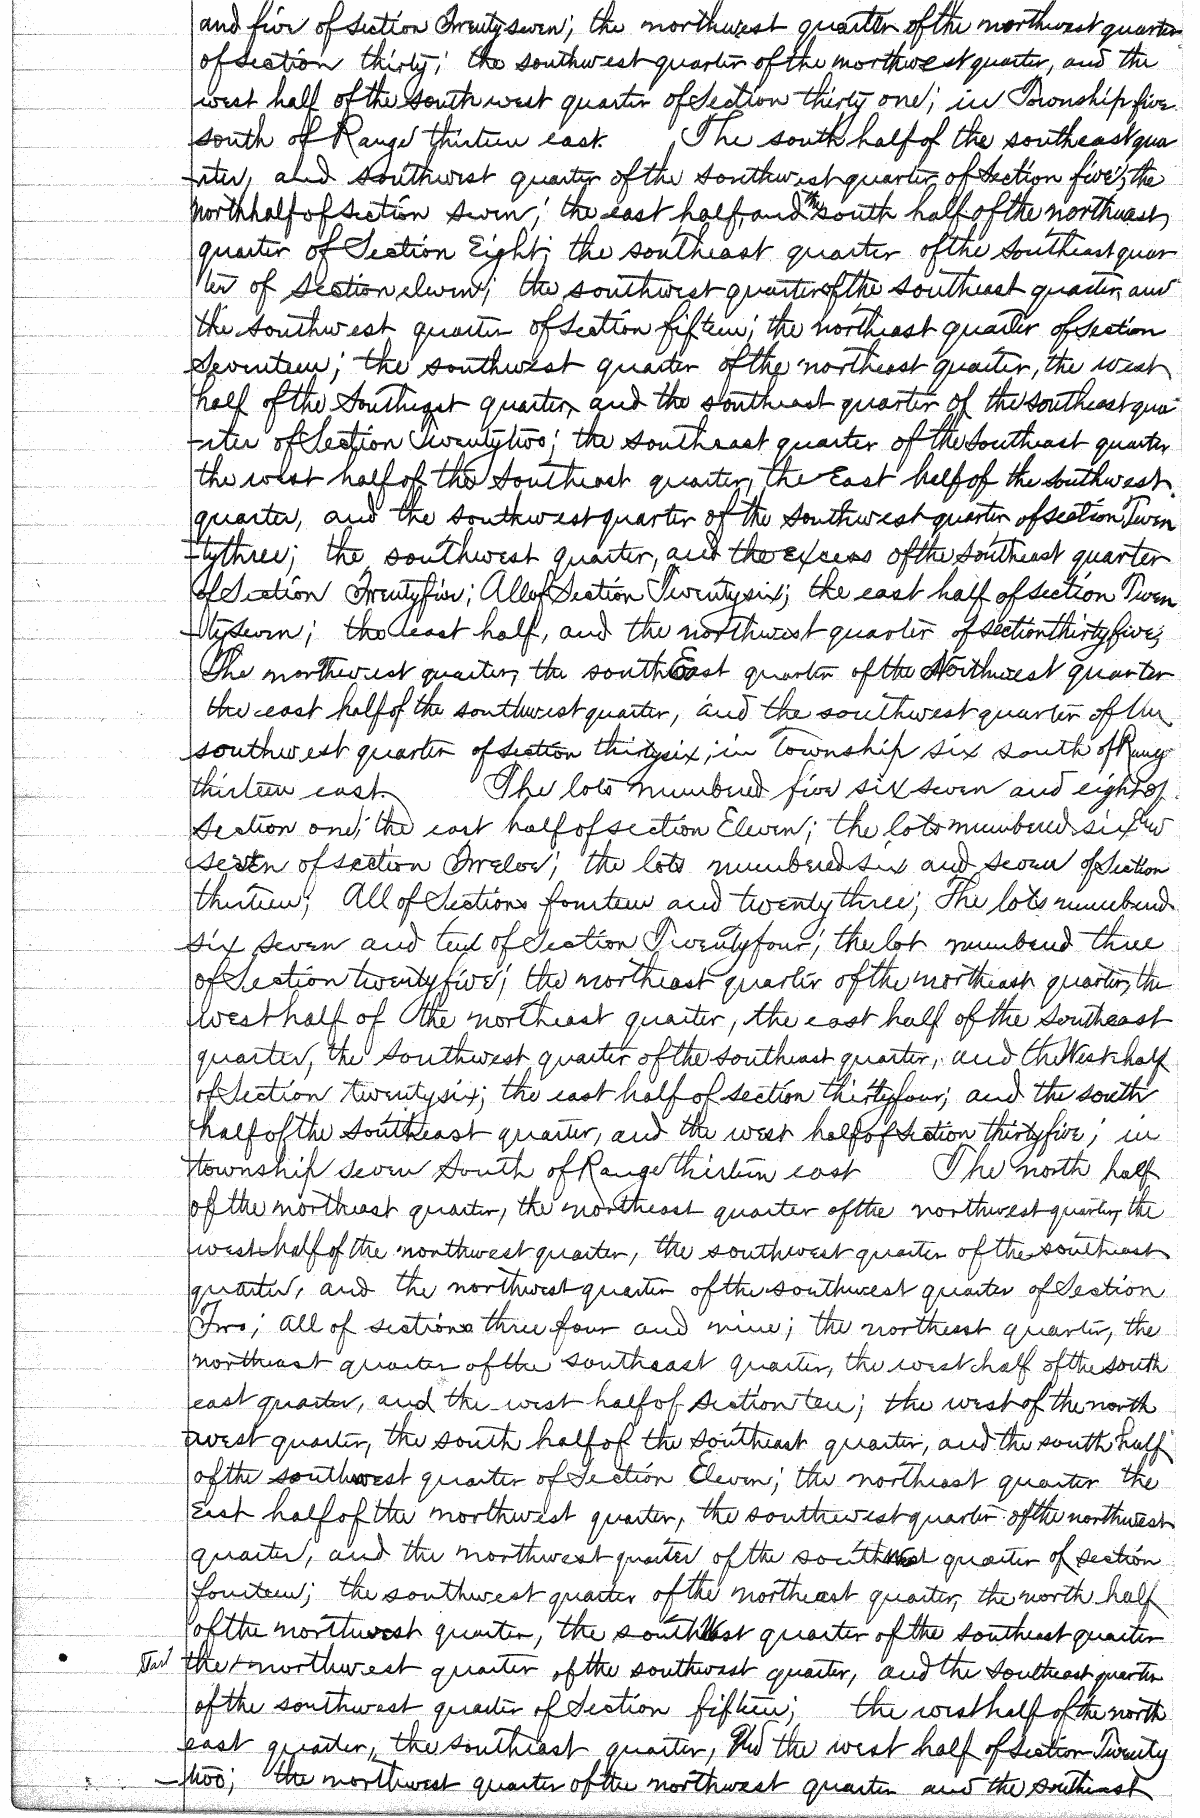 and five of section Twenty seven; the northwest quarter of the northwest quarter
of section thirty; the southwest quarter of the northwest quarter, and the
west half of the south west quarter of Section thirty one; in Township five
south of Range thirteen east. The south half of the southeast qua
-rter, and southwest quarter of the southwest quarter of Section five; the
north half of section seven; the east half, and the south half of the northwest
quarter of Section Eight; the southeast quarter of the Southeast quar
ter of Section eleven; the southwest quarter of the southeast quarter, and
the southwest quarter of section fifteen; the northeast quarter of section
Seventeen; the southwest quarter of the northeast quarter, the west
half of the Southeast quarter, and the southeast quarter of the southeast qua
-rter of Section Twenty two; the southeast quarter of the Southeast quarter
the west half of the Southeast quarter, the East half of the southwest
quarter, and the southwest quarter of the southwest quarter of section Twen
-ty three; the southwest quarter, and the excess of the Southeast quarter
of Section Twenty five; All of Section Twenty six; the east half of section Twen
-ty Seven; the east half, and the northwest quarter of section thirty five;
The northwest quarter, the south East quarter of the Northwest quarter
the east half of the southwest quarter, and the southwest quarter of the
southwest quarter of section thirty six; in Township six south of Range
thirteen east. The lots numbered five six seven and eight of
Section one; the east half of section Eleven; the lots numbered six and
seven of section Twelve; the lots numbered six and seven of Section
thirteen; All of Sections fourteen and twenty three; The lots numbered
six seven and ten of Section Twenty four; the lot numbered three
of Section twenty five; the northeast quarter of the northeast quarter, the
west half of the northeast quarter, the east half of the Southeast
quarter, the southwest quarter of the southeast quarter, and the West half
of Section twenty six; the east half of section thirty four; and the south
half of the Southeast quarter, and the west half of Section thirty five; in
township seven South of Range thirteen east The north half
of the northeast quarter, the northeast quarter of the northwest quarter, the
west half of the northwest quarter, the southwest quarter of the southeast
quarter, and the northwest quarter of the southwest quarter of Section
Two; all of sections three four and nine; the northeast quarter, the
northeast quarter of the southeast quarter, the west half of the south
east quarter, and the west half of Section ten; the west of the north
west quarter, the south half of the Southeast quarter, and the south half
of the southwest quarter of Section Eleven; the northeast quarter the
East half of the northwest quarter, the southwest quarter of the northwest
quarter, and the northwest quarter of the southwest quarter of section
fourteen; the southwest quarter of the northeast quarter, the north half
of the northwest quarter, the southWest quarter of the southeast quarter
the northwest quarter of the southwest quarter, and the Southeast quarter
of the southwest quarter of Section fifteen; the west half of the north
east quarter, the southeast quarter, and the west half of Section Twenty
-two; the northwest quarter of the northwest quarter and the southeast